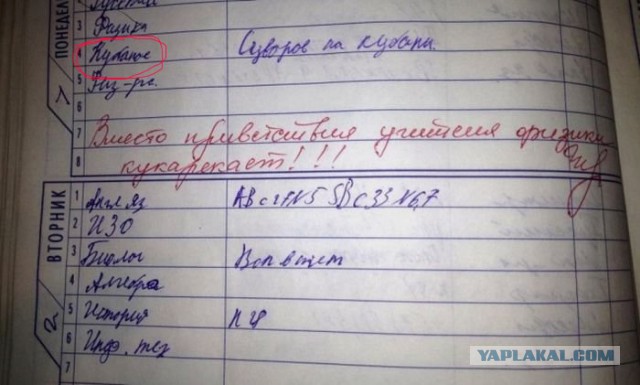 ПОНЕДЕЛ
3 Физика
4 Кубанов Суворов на кубани.
5 Физ-ра.
6
7 Вместо приветствия учителя физики
8 кукарекает!!!
ВТОРНИК
1 Англ яз АВ с 27 N5 SB с 33 N6,7
2 ИЗО
3 Биолог
4 Алгебра
5 История
6 Инф. тех
7
YAPLAKAL.COM